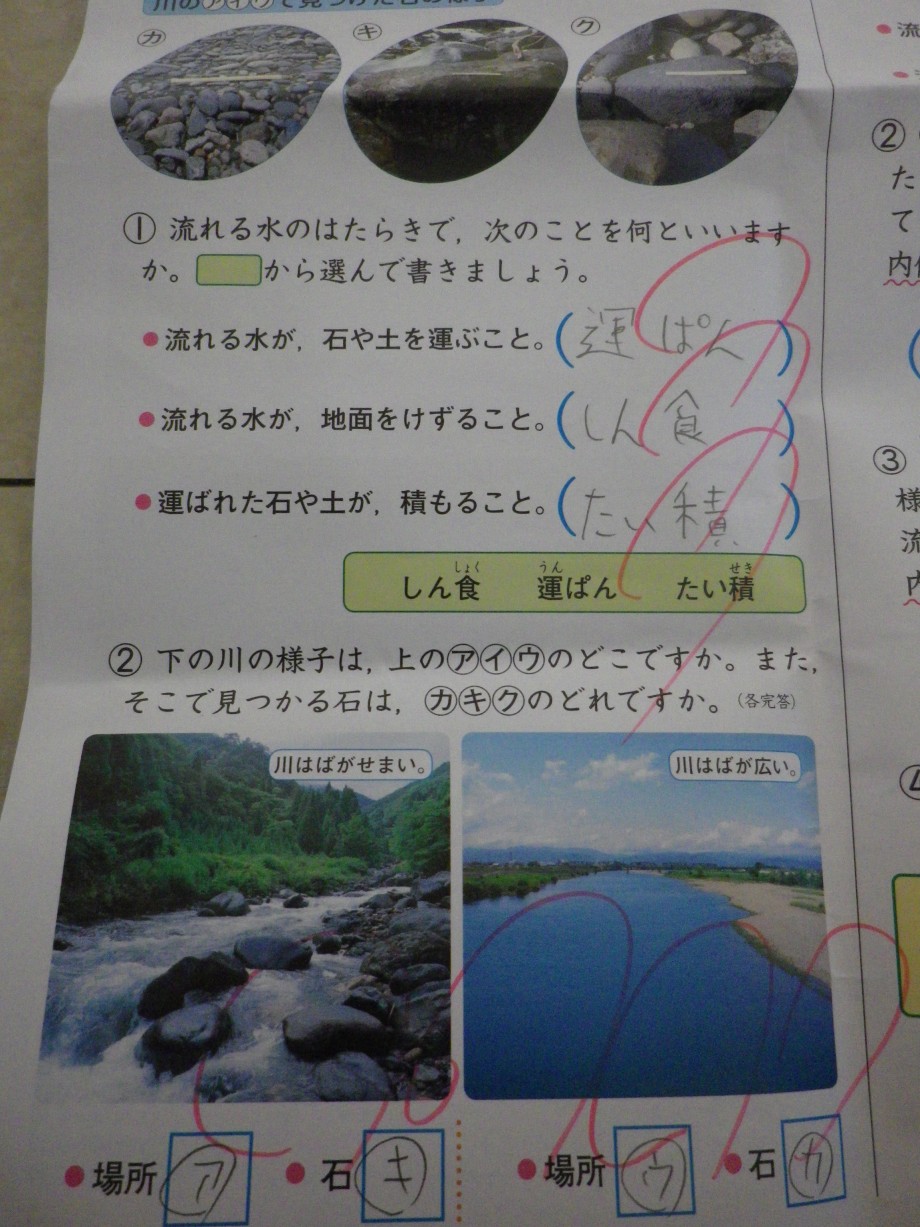 川の㋐㋑㋒で見つけた石の様子
㋕
㋖
㋗
① 流れる水のはたらきで，次のことを何といいます
か。から選んで書きましょう。
●流れる水が，石や土を運ぶこと。(運ぱん)
●流れる水が，地面をけずること。(しん食)
●運ばれた石や土が，積もること。(たい積)
しょく うん せき
しん食 運ぱん たい積
② 下の川の様子は，上の㋐㋑㋒のどこですか。また，
そこで見つかる石は，㋕㋖㋗のどれですか。(各完答)
川はばがせまい。
川はばが広い。
●場所 ㋐ ●石 ㋖ ●場所 ㋒ ●石 ㋕
●流
②
た
て
③
様
流
内
④